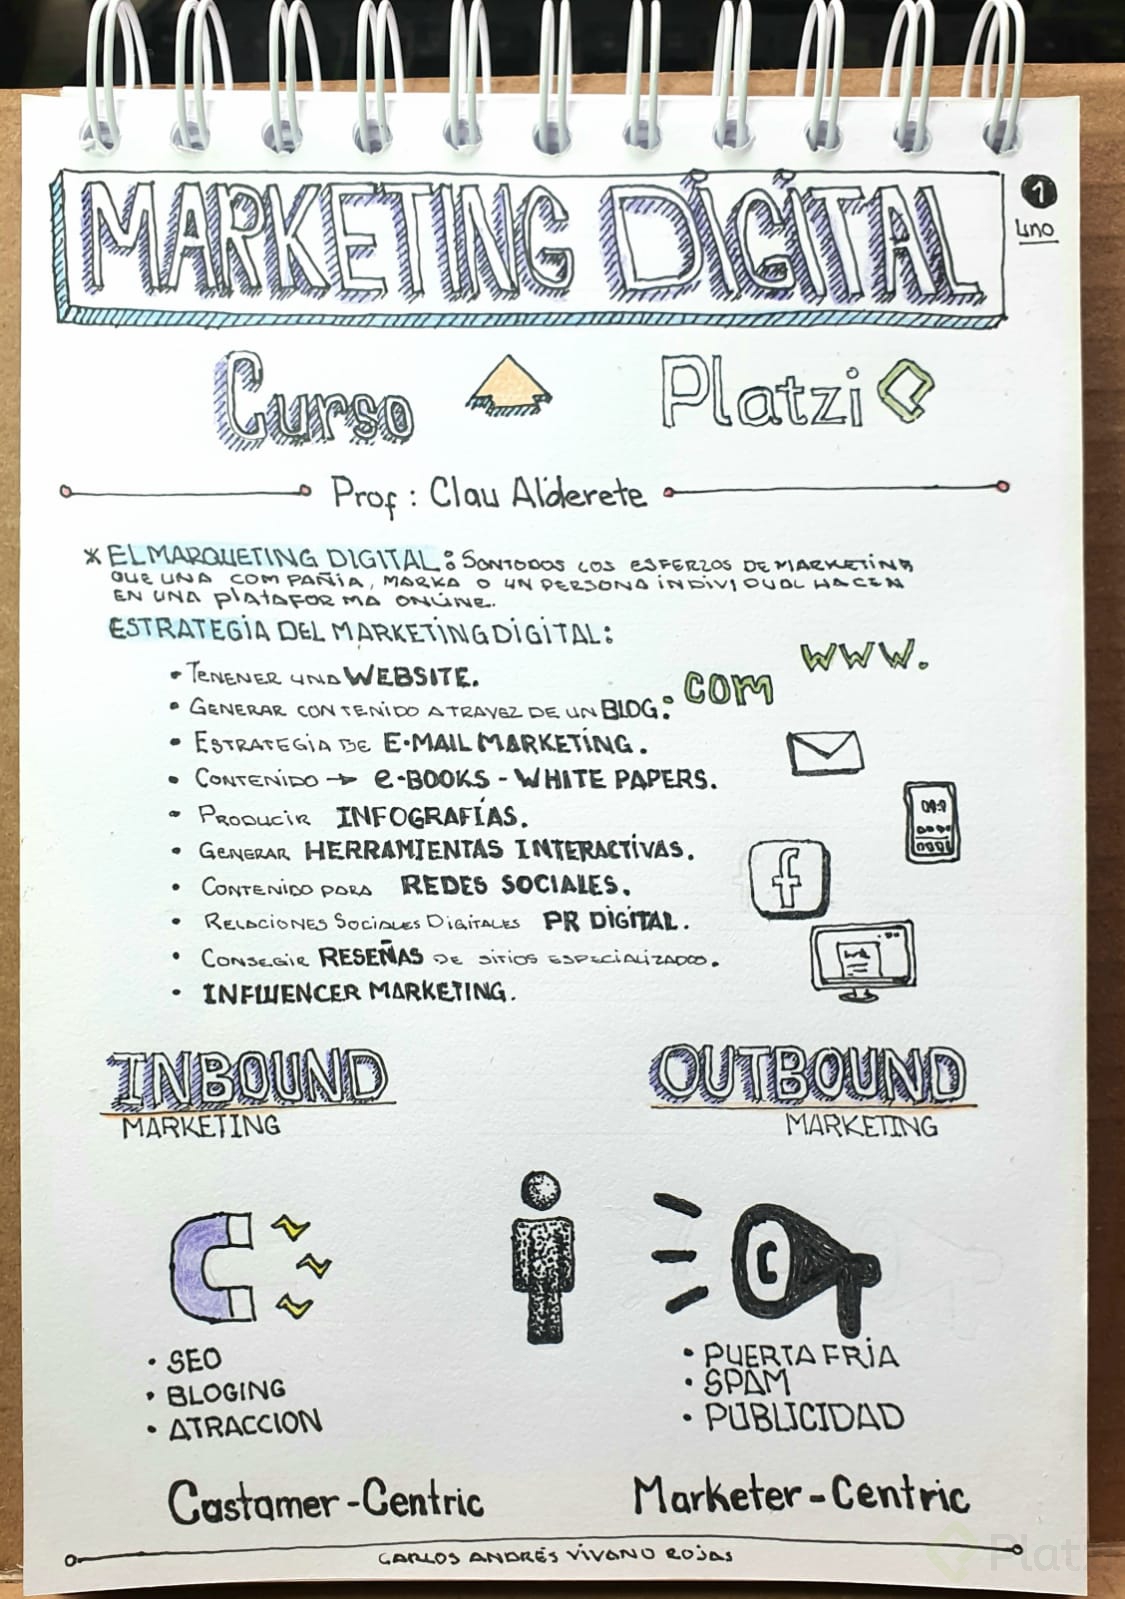 MARKETING DIGITAL
1
uno
Curso
Platzi
Prof: Clau Alderete
* EL MARQUETING DIGITAL: SON TODOS LOS ESFERZOS DE MARKETING
QUE UNA COMPAÑIA, MARKA O UN PERSONA INDIVIDUAL HACEN
EN UNA PLATAFORMA ONLINE.
ESTRATEGIA DEL MARKETING DIGITAL:
• TENENER UNA WEBSITE.
www.
.com
• GENERAR CONTENIDO ATRAVEZ DE UN BLOG.
• ESTRATEGIA DE E-MAIL MARKETING.
• CONTENIDO → e-BOOKS - WHITE PAPERS.
• PRODUCIR INFOGRAFÍAS.
• GENERAR HERRAMIENTAS INTERACTIVAS.
• CONTENIDO PARA REDES SOCIALES.
f
• RELACIONES SOCIALES DIGITALES PR DIGITAL.
• CONSEGIR RESEÑAS DE SITIOS ESPECIALIZADO.
• INFLUENCER MARKETING.
INBOUND
MARKETING
OUTBOUND
MARKETING
• SEO
• BLOGING
• ATRACCION
• PUERTA FRIA
• SPAM
• PUBLICIDAD
Castamer-Centric
Marketer-Centric
CARLOS ANDRÉS VIVANO ROJAS
Platz